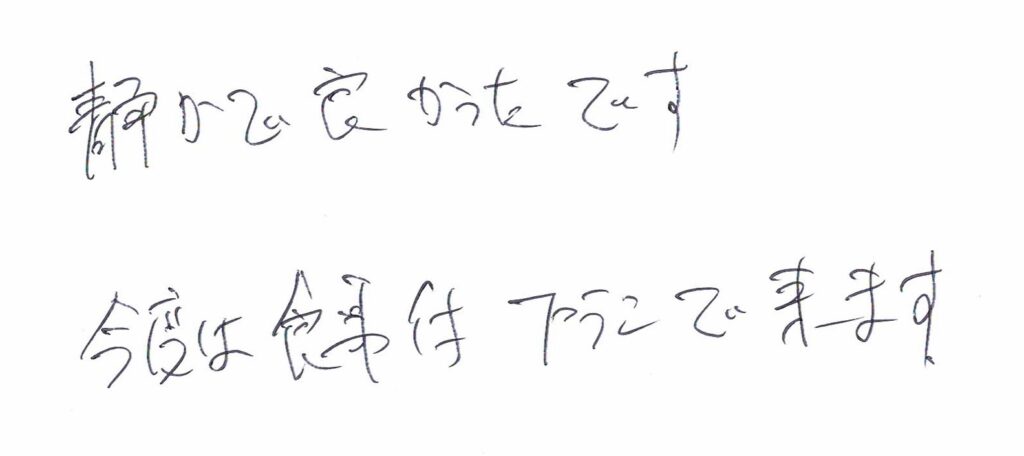 静かで良かったです
今度は食事付プランで来ます